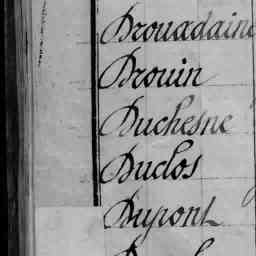 Drouadaine
Drouin
Duchesne
Duclos
Dupont